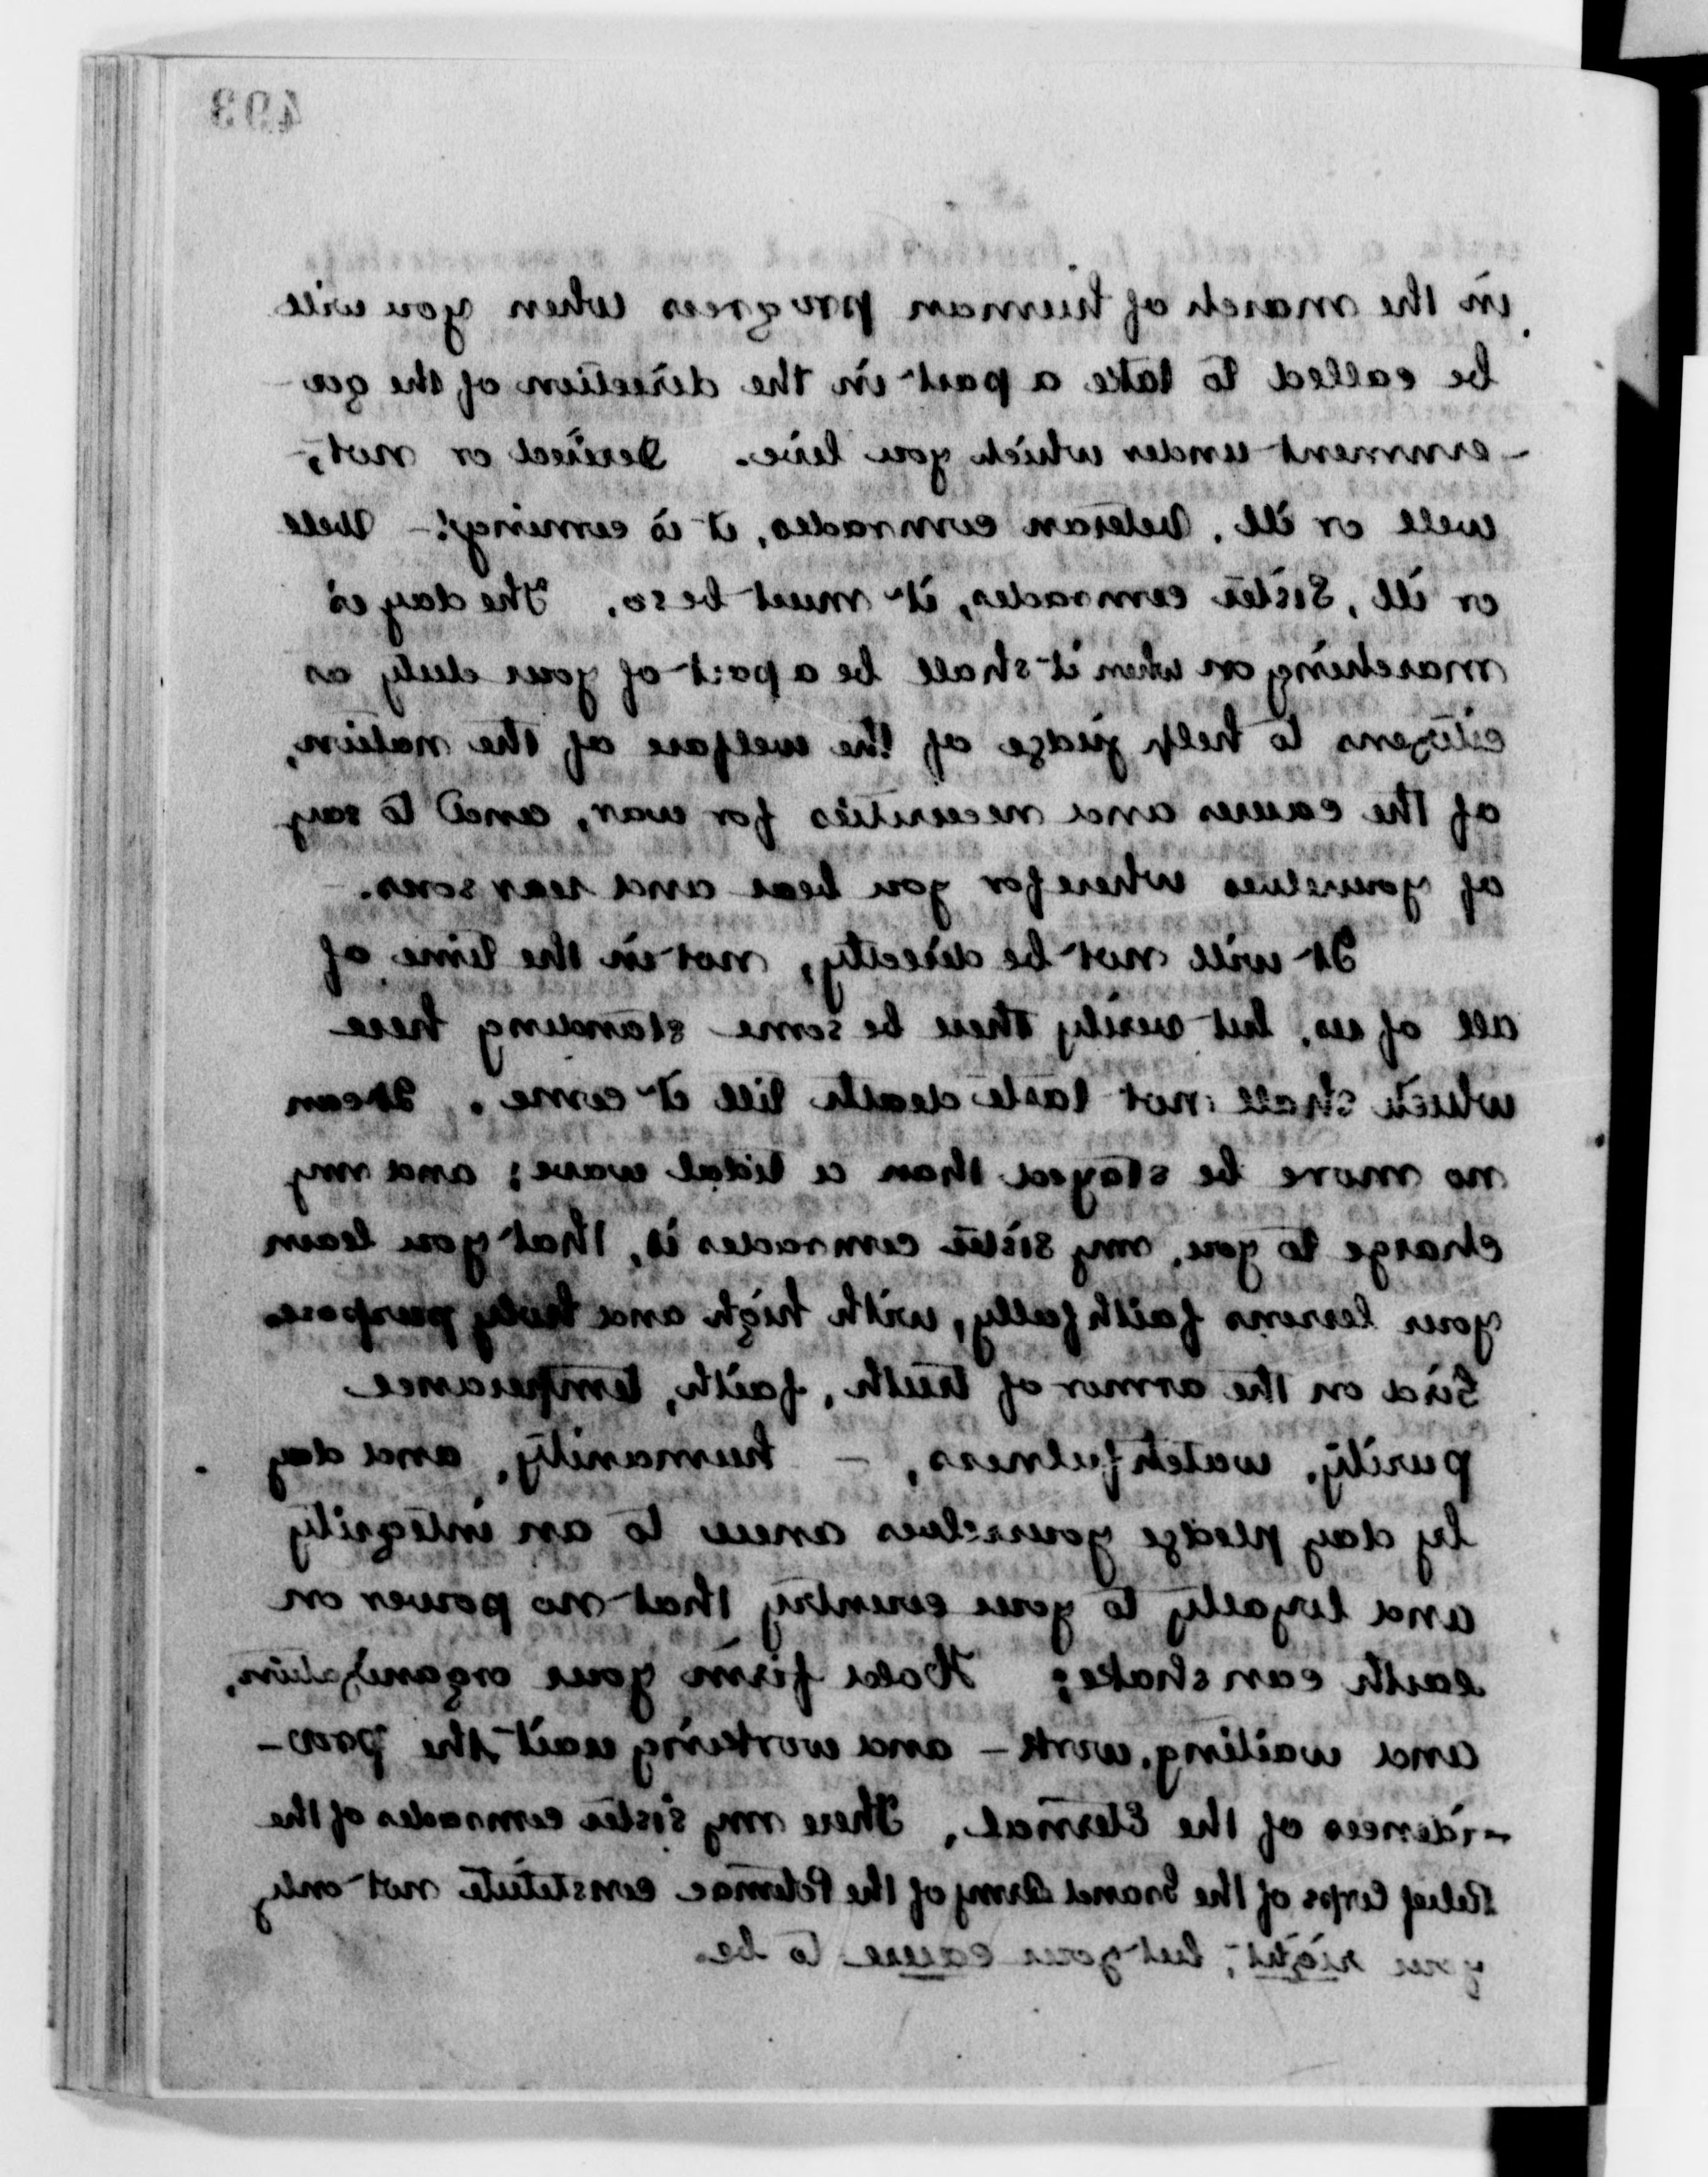 493
in the march of human progress when you will
be called to take a part in the direction of the gov
-ernment under which you live. Desired or not,-
well or ill, Veteran comrades, it is coming! - Well
or ill, Sister comrades, it must be so. The day is
marching on when it shall be a part of your duty as
citizens to help judge of the welfare of the nation,
of the causes and necessities for war, and to say
of yourselves wherefor you bear and rear sons.
It will not be directly, not in the time of
all of us, but verily there be some standing here
which shall not taste death till it come. It can
no more be stayed than a tidal wave; and my
charge to you, my sister comrades is, that you learn
your lessons faithfully, with high and holy purpose
Gird on the armor of truth, faith, temperance
purity, watchfulness, - humanity, and day
by day pledge yourselves anew to an integrity
and loyalty to your country that no power on
earth can shake; Hold firm your organization,
and waiting, work - and working wait the prov-
-idences of the Eternal. These my sister comrades of the
Relief Corps of the Grand Army of the Potomac constitute not only
your right, but your cause to be.